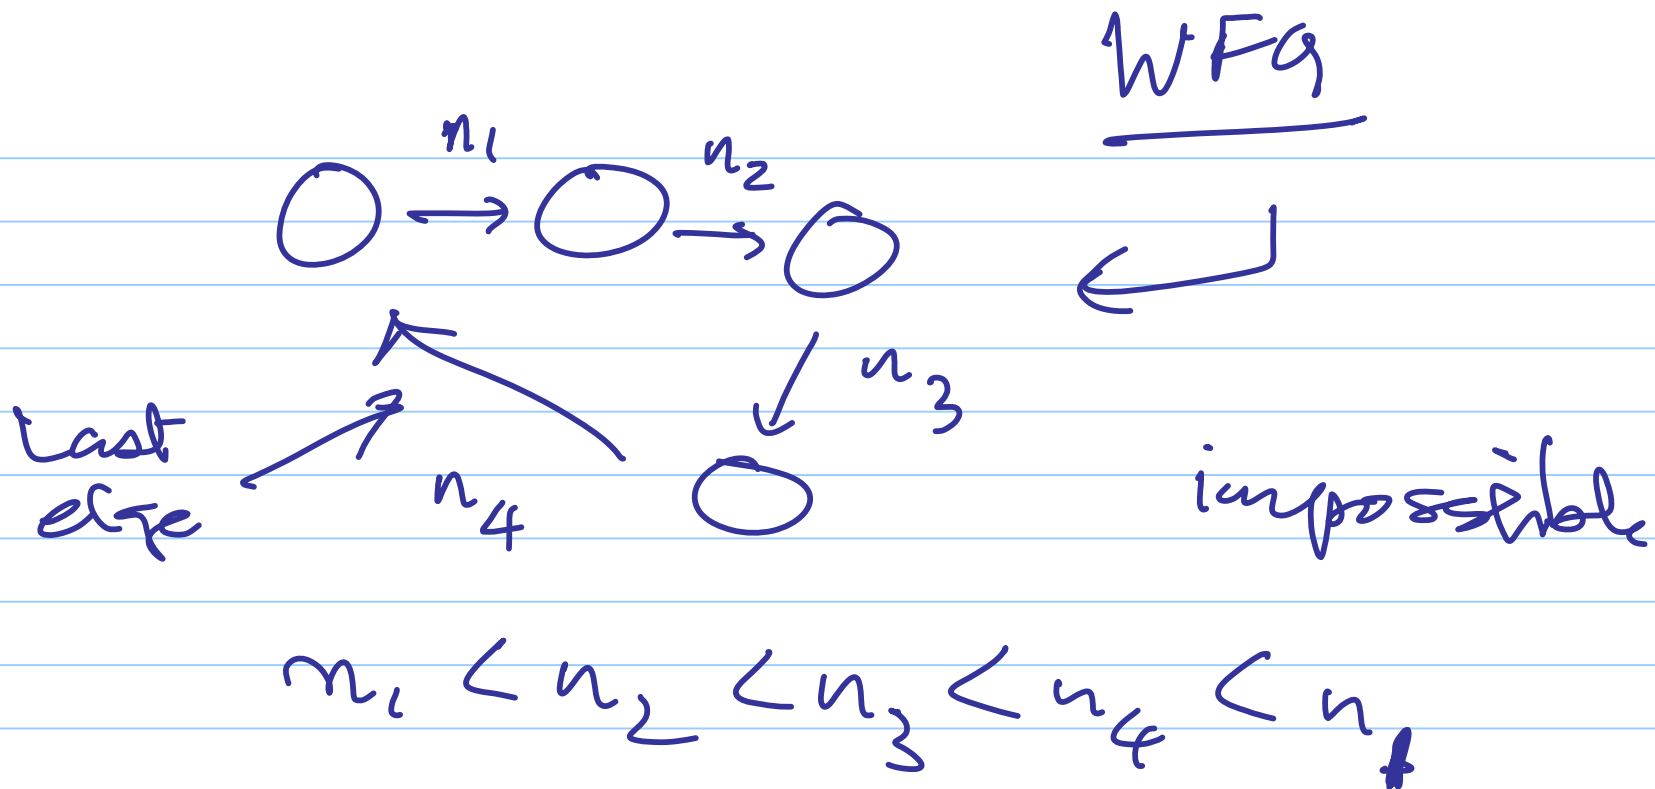 WFG
n1
n2
n3
Last
edge
n4
impossible
n1 < n2 < n3 < n4 < n1